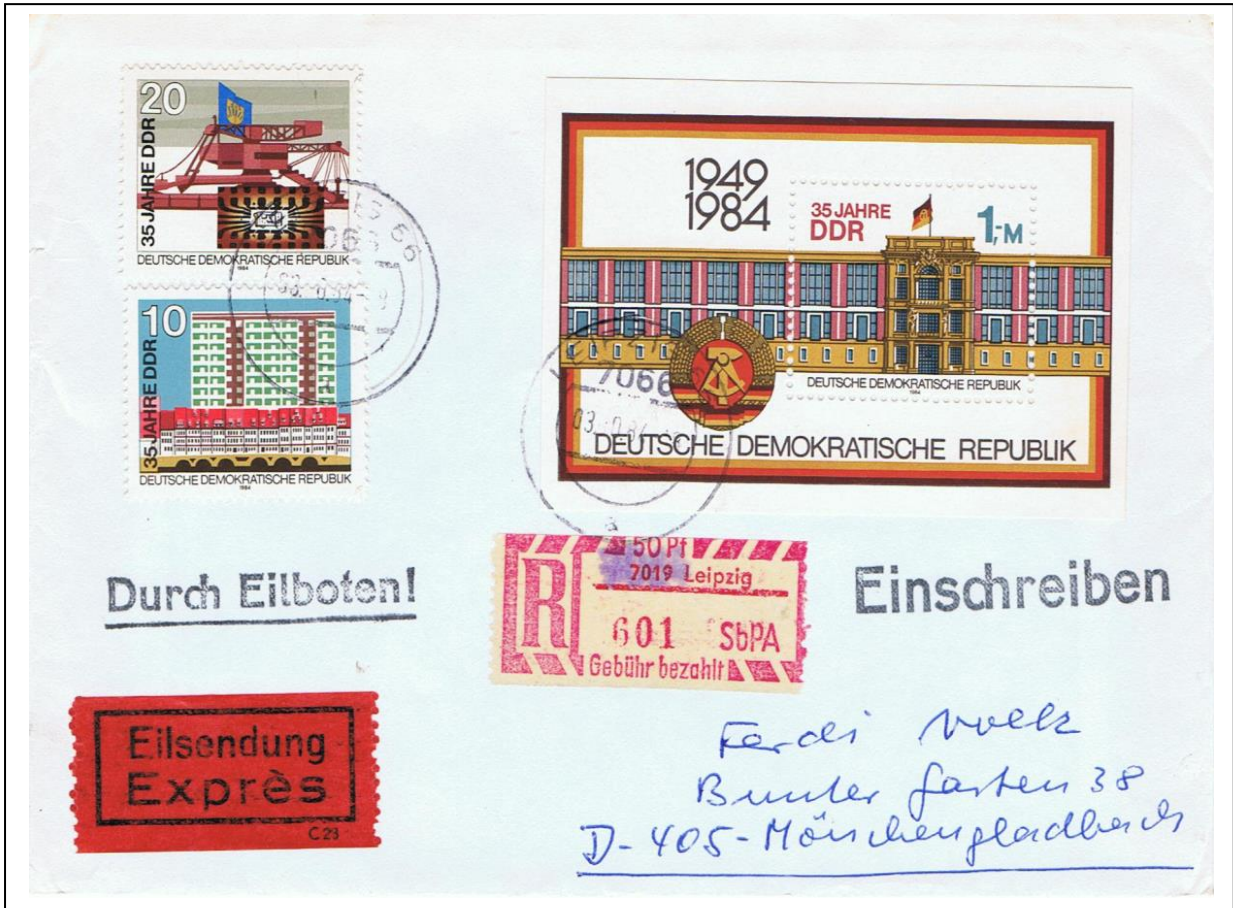 20
35 JAHRE DDR
DEUTSCHE DEMOKRATISCHE REPUBLIK
1984
10
35 JAHRE DDR
DEUTSCHE DEMOKRATISCHE REPUBLIK
1984
1949
1984
35 JAHRE
DDR
1,-M
DEUTSCHE DEMOKRATISCHE REPUBLIK
1984
7066
DEUTSCHE DEMOKRATISCHE REPUBLIK
a
Durch Eilboten!
R
50 Pf
7019 Leipzig
601 SbPA
Gebühr bezahlt
Einschreiben
Eilsendung
Exprès
C 23
Ferdi Volk
Bunter Garten 38
D-405-Mönchengladbach